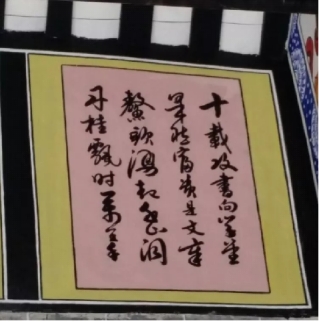 十載攻書向學堂
果然富貴是文章
鰲頭湧起
丹桂飄時萬里香